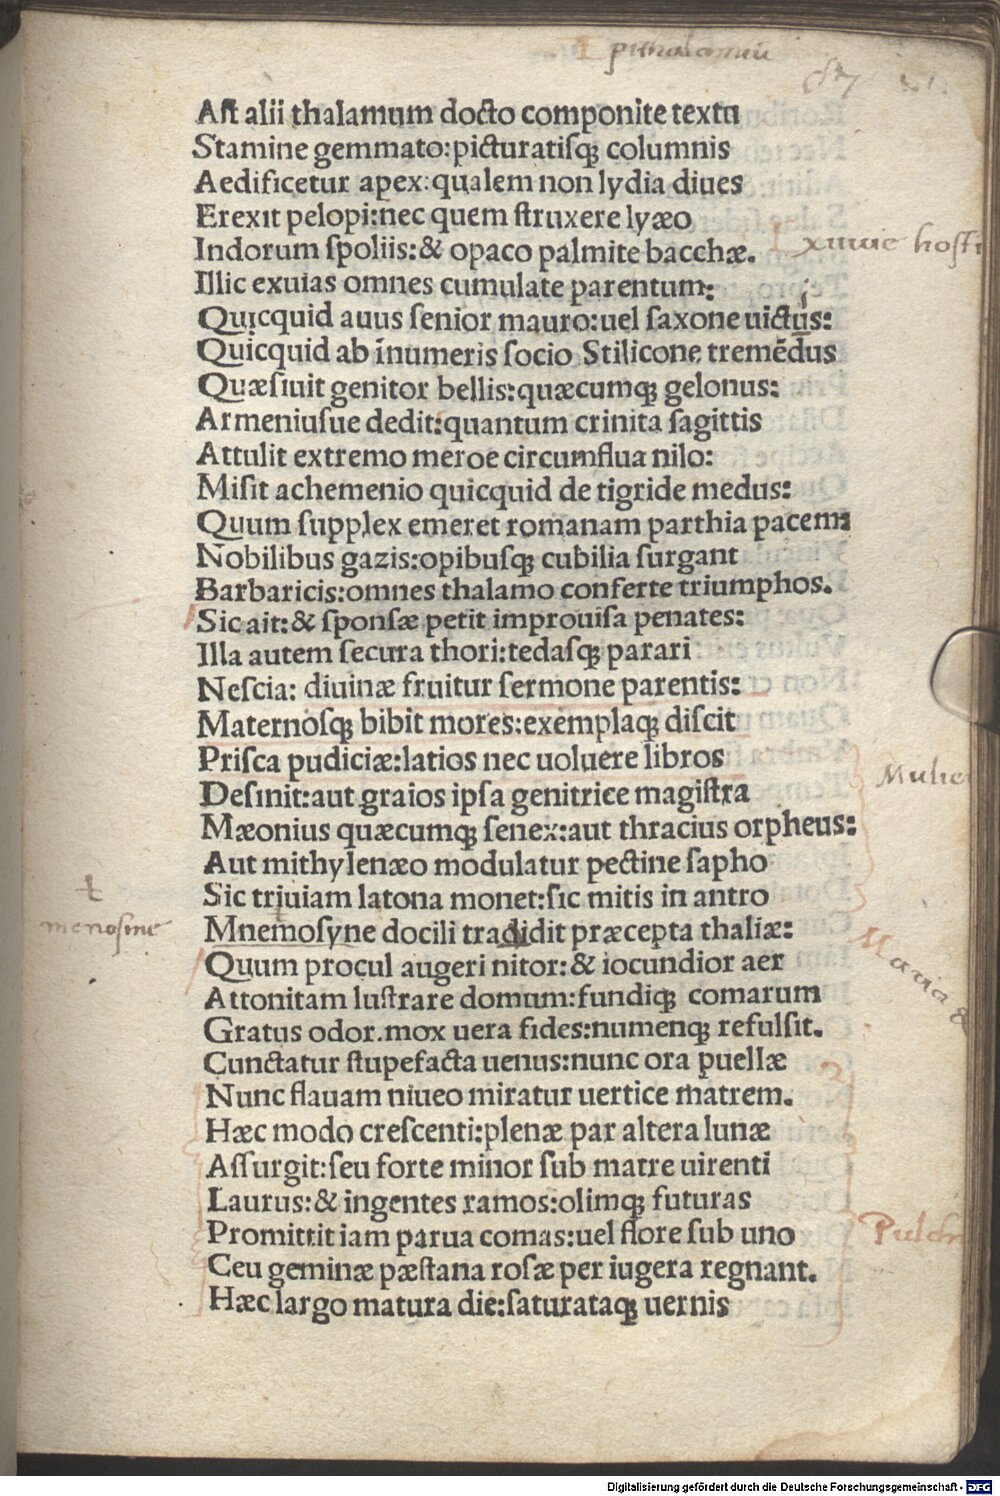 Aſt alii thalamum docto componite textu
Stamine gemmato:picturatiſq; columnis
Aedificetur apex:qualem non lydia diues
Erexit pelopi:nec quem ſtruxere lyæo
Indorum ſpoliis:& opaco palmite bacchæ.
Exuuie hosti
Illic exuias omnes cumulate parentum:
Quicquid auus ſenior mauro:uel ſaxone uictis:
Quicquid ab īnumeris ſocio Stilicone tremēdus
Quæſiuit genitor bellis:quæcumq; gelonus:
Armeniuſue dedit:quantum crinita ſagittis
Attulit extremo meroe circumflua nilo:
Miſit achemenio quicquid de tigride medus:
Quum ſupplex emeret romanam parthia pacem:
Nobilibus gazis:opibuſq; cubilia ſurgant
Barbaricis:omnes thalamo conferte triumphos.
Sic ait:& ſponſæ petit improuiſa penates:
Illa autem ſecura thori:tedaſq; parari
Neſcia: diuinæ fruitur ſermone parentis:
Maternoſq; bibit mores:exemplaq; diſcit
Priſca pudiciæ:latios nec uoluere libros
Mulie
Deſinit:aut graios ipſa genitrice magiſtra
Mæonius quæcumq; ſenex:aut thracius orpheus:
Aut mithylenæo modulatur pectine ſapho
Sic triuiam latona monet:ſic mitis in antro
menoſine
Mnemoſyne docili tradidit præcepta thaliæ:
Maria &
Quum procul augeri nitor:& iocundior aer
Attonitam luſtrare domum:fundiq; comarum
Gratus odor.mox uera fides:numenq; refulſit.
Cunctatur ſtupefacta uenus:nunc ora puellæ
Nunc flauam niueo miratur uertice matrem.
Hæc modo creſcenti:plenæ par altera lunæ
Aſſurgit:ſeu forte minor ſub matre uirenti
Laurus:& ingentes ramos:olimq; futuras
Promittit iam parua comas:uel flore ſub uno
Pulchr
Ceu geminæ pæſtana roſæ per iugera regnant.
Hæc largo matura die:ſaturataq; uernis
Digitalisierung gefördert durch die Deutsche Forschungsgemeinschaft - DFG